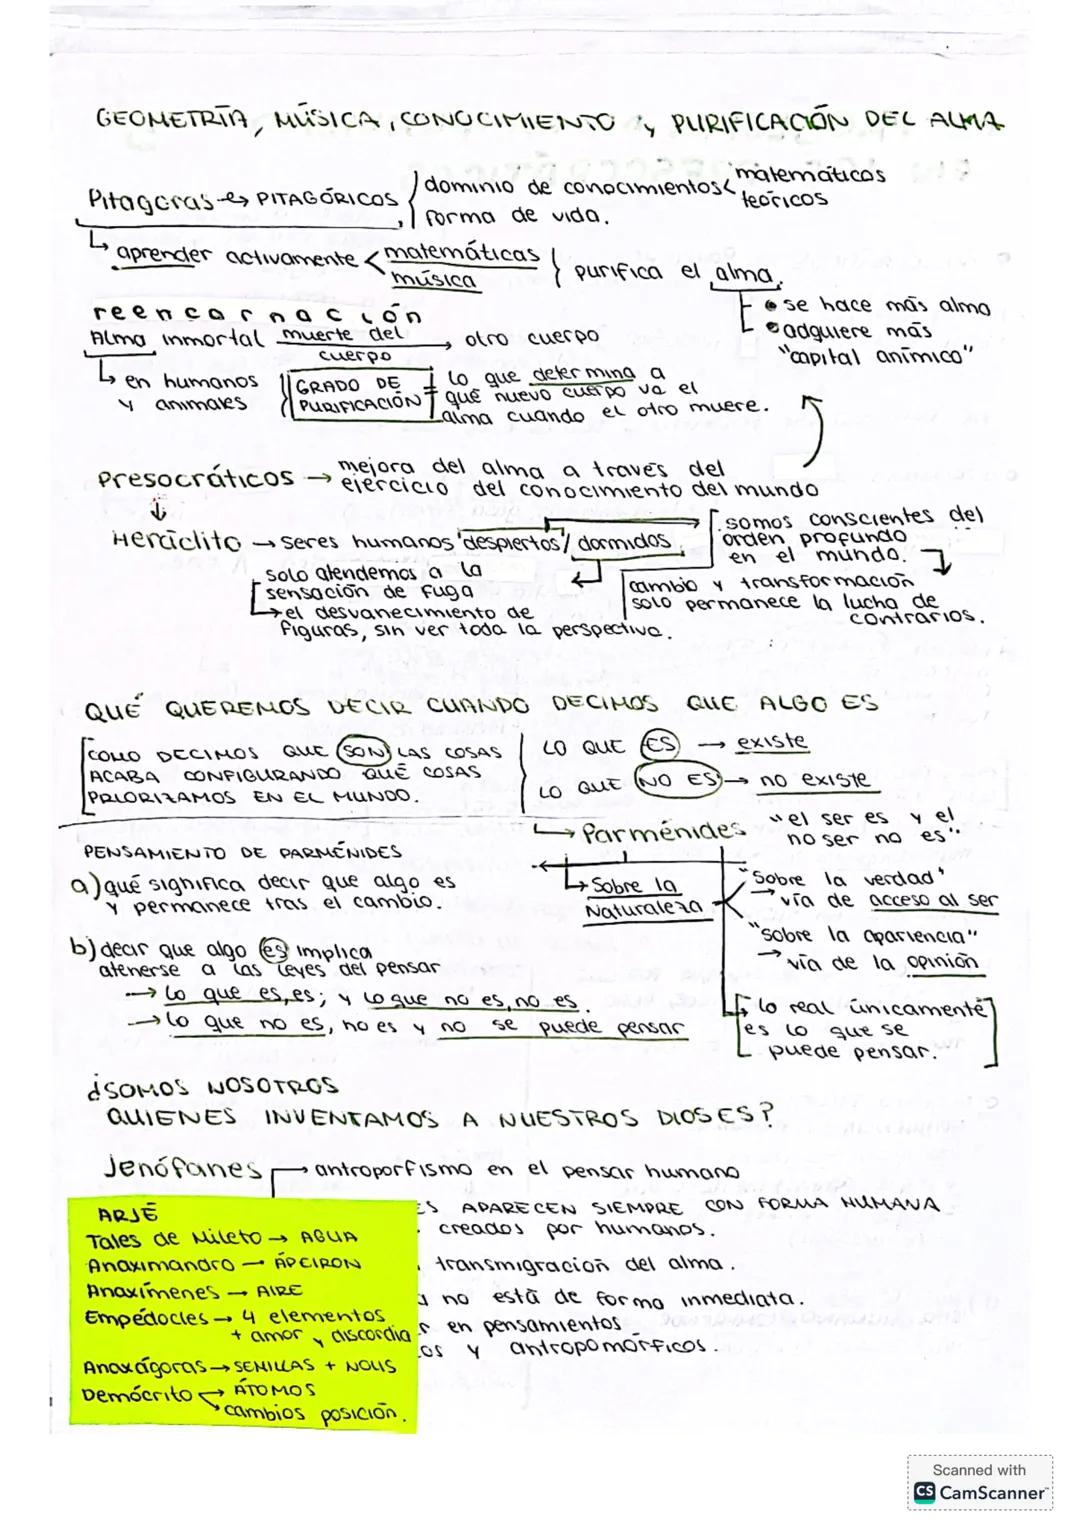 GEOMETRÍA, MÚSICA, CONOCIMIENTO Y PURIFICACIÓN DEL ALMA
Pitagoras → PITAGÓRICOS
dominio de conocimientos < matemáticos
teóricos
forma de vida.
aprender activamente < matemáticas
música
purifica el alma.
• se hace más alma
• adquiere más
"capital anímico"
reencarnación
Alma inmortal muerte del
cuerpo → otro cuerpo
en humanos
y animales
GRADO DE
PURIFICACIÓN
= lo que determina a
qué nuevo cuerpo va el
alma cuando el otro muere.
Presocráticos → mejora del alma a través del
ejercicio del conocimiento del mundo
Heráclito → seres humanos despiertos / dormidos
somos conscientes del
orden profundo
en el mundo.
cambio y transformación
solo permanece la lucha de
contrarios.
solo atendemos a la
sensación de fuga
→ el desvanecimiento de
figuras, sin ver toda la perspectiva.
QUÉ QUEREMOS DECIR CUANDO DECIMOS QUE ALGO ES
COMO DECIMOS QUE SON LAS COSAS
ACABA CONFIGURANDO QUÉ COSAS
PRIORIZAMOS EN EL MUNDO.
LO QUE ES → existe
LO QUE NO ES → no existe
→ Parménides "el ser es y el
no ser no es".
PENSAMIENTO DE PARMÉNIDES
a) qué significa decir que algo es
y permanece tras el cambio.
b) decir que algo es implica
atenerse a las leyes del pensar
→ lo que es, es; y lo que no es, no es.
→ lo que no es, no es y no se puede pensar
Sobre la
Naturaleza
"Sobre la verdad"
→ vía de acceso al ser
"sobre la apariencia"
→ vía de la opinión
lo real únicamente
es lo que se
puede pensar.
¿SOMOS NOSOTROS
QUIENES INVENTAMOS A NUESTROS DIOSES?
Jenófanes → antroporfismo en el pensar humano
ES APARECEN SIEMPRE CON FORMA HUMANA
creados por humanos.
transmigración del alma.
no está de forma inmediata.
en pensamientos
os y antropomórficos.
ARJÉ
Tales de Mileto → AGUA
Anaximandro → ÁPEIRON
Anaxímenes → AIRE
Empédocles → 4 elementos
+ amor y discordia
Anaxágoras → SEMILLAS + NOUS
Demócrito → ÁTOMOS
cambios posición.
Scanned with
CS CamScanner